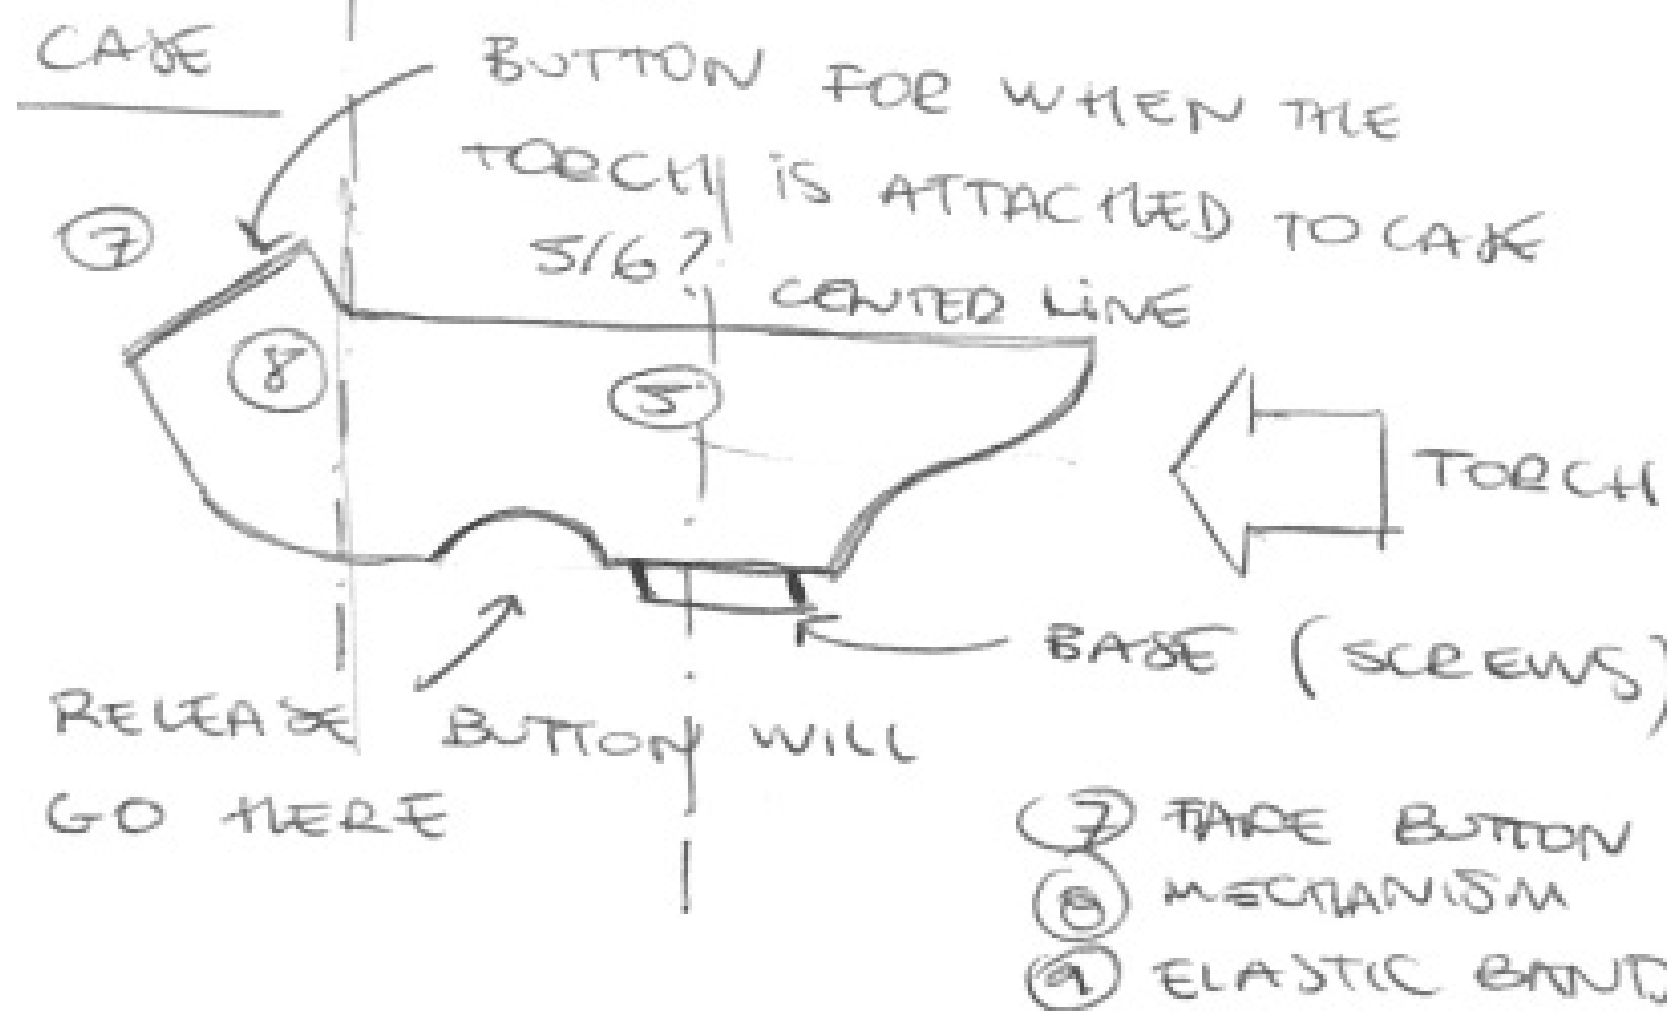 CASE
BUTTON FOR WHEN THE
TORCH IS ATTACHED TO CASE
5/6?
CENTER LINE
7
8
5
TORCH
BASE (SCREWS)
RELEASE BUTTON WILL
GO HERE
7 BUTTON
8 MECHANISM
9 ELASTIC BAND